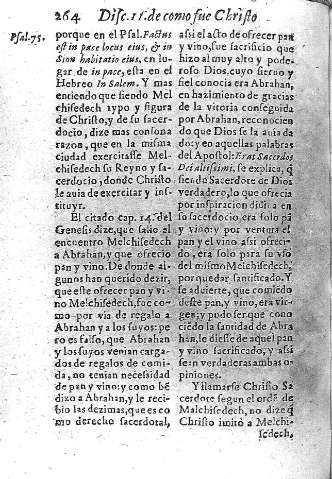 264 Disc. 11. de como fue Christo
Psal. 75.
porque en el Psal. Factus
est in pace locus eius, & in
Sion habitatio eius, en lu-
gar de in pace, esta en el
Hebreo In Salem. Y mas
entiendo que siendo Mel
chisedech typo y figura
de Christo, y de su sacer-
docio, dize mas conso̅na
razon, que en la misma
ciudad exercitasse Mel-
chisedech su Reyno y sa-
cerdocio, donde Christo
le auia de exercitar y ins-
tituyr.
El citado cap. 14. del
Genesis dize, que salio el
encuentro Melchisedech
a Abrahan, y que ofrecio
pan y vino. De donde al-
gunos han querido dezir,
que este ofrecer pan y vi-
no Melchisedech, fue co-
mo por via de regalo a
Abrahan y a los suyos: pe
ro es falso, que Abrahan
y los suyos venian carga-
dos de regalos de comi-
da, no tenian necessidad
de pan y vino: y como bẽ
dixo a Abrahan, y le reci-
bio las dezimas, que es co
mo derecho sacerdotal,
assi el acto de ofrecer pan
y vino, fue sacrificio que
hizo al muy alto y pode-
roso Dios, cuyo sieruo y
fiel conocia era Abrahan,
en hazimiento de gracias
de la vitoria conseguida
por Abrahan, reconocien
do que Dios se la auia da
do: y en aquellas palabras
del Apostol: Eras Sacerdos
Dei altissimi, se explica, q̃
siendo Sacerdote de Dios
verdadero, lo que ofrecia
por inspiracion diuina en
su sacerdocio era solo pã
y vino: y por ventura el
pan y el vino assi ofreci-
do, era solo para su vso
del mismo Melchisedech,
por quedar santificado. Y
se aduierte, que comiedo
deste pan, y vino, era vir-
gen, y pudo ser que cono
ciẽdo la santidad de Abra
han, le diesse de aquel pan
y vino sacrificado, y assi
seran verdaderas ambas o-
piniones.
Y llamarse Christo Sa
cerdote segun el ordẽ de
Malchisedech, no dize q̃
Christo imitò a Melchi-
sedech,